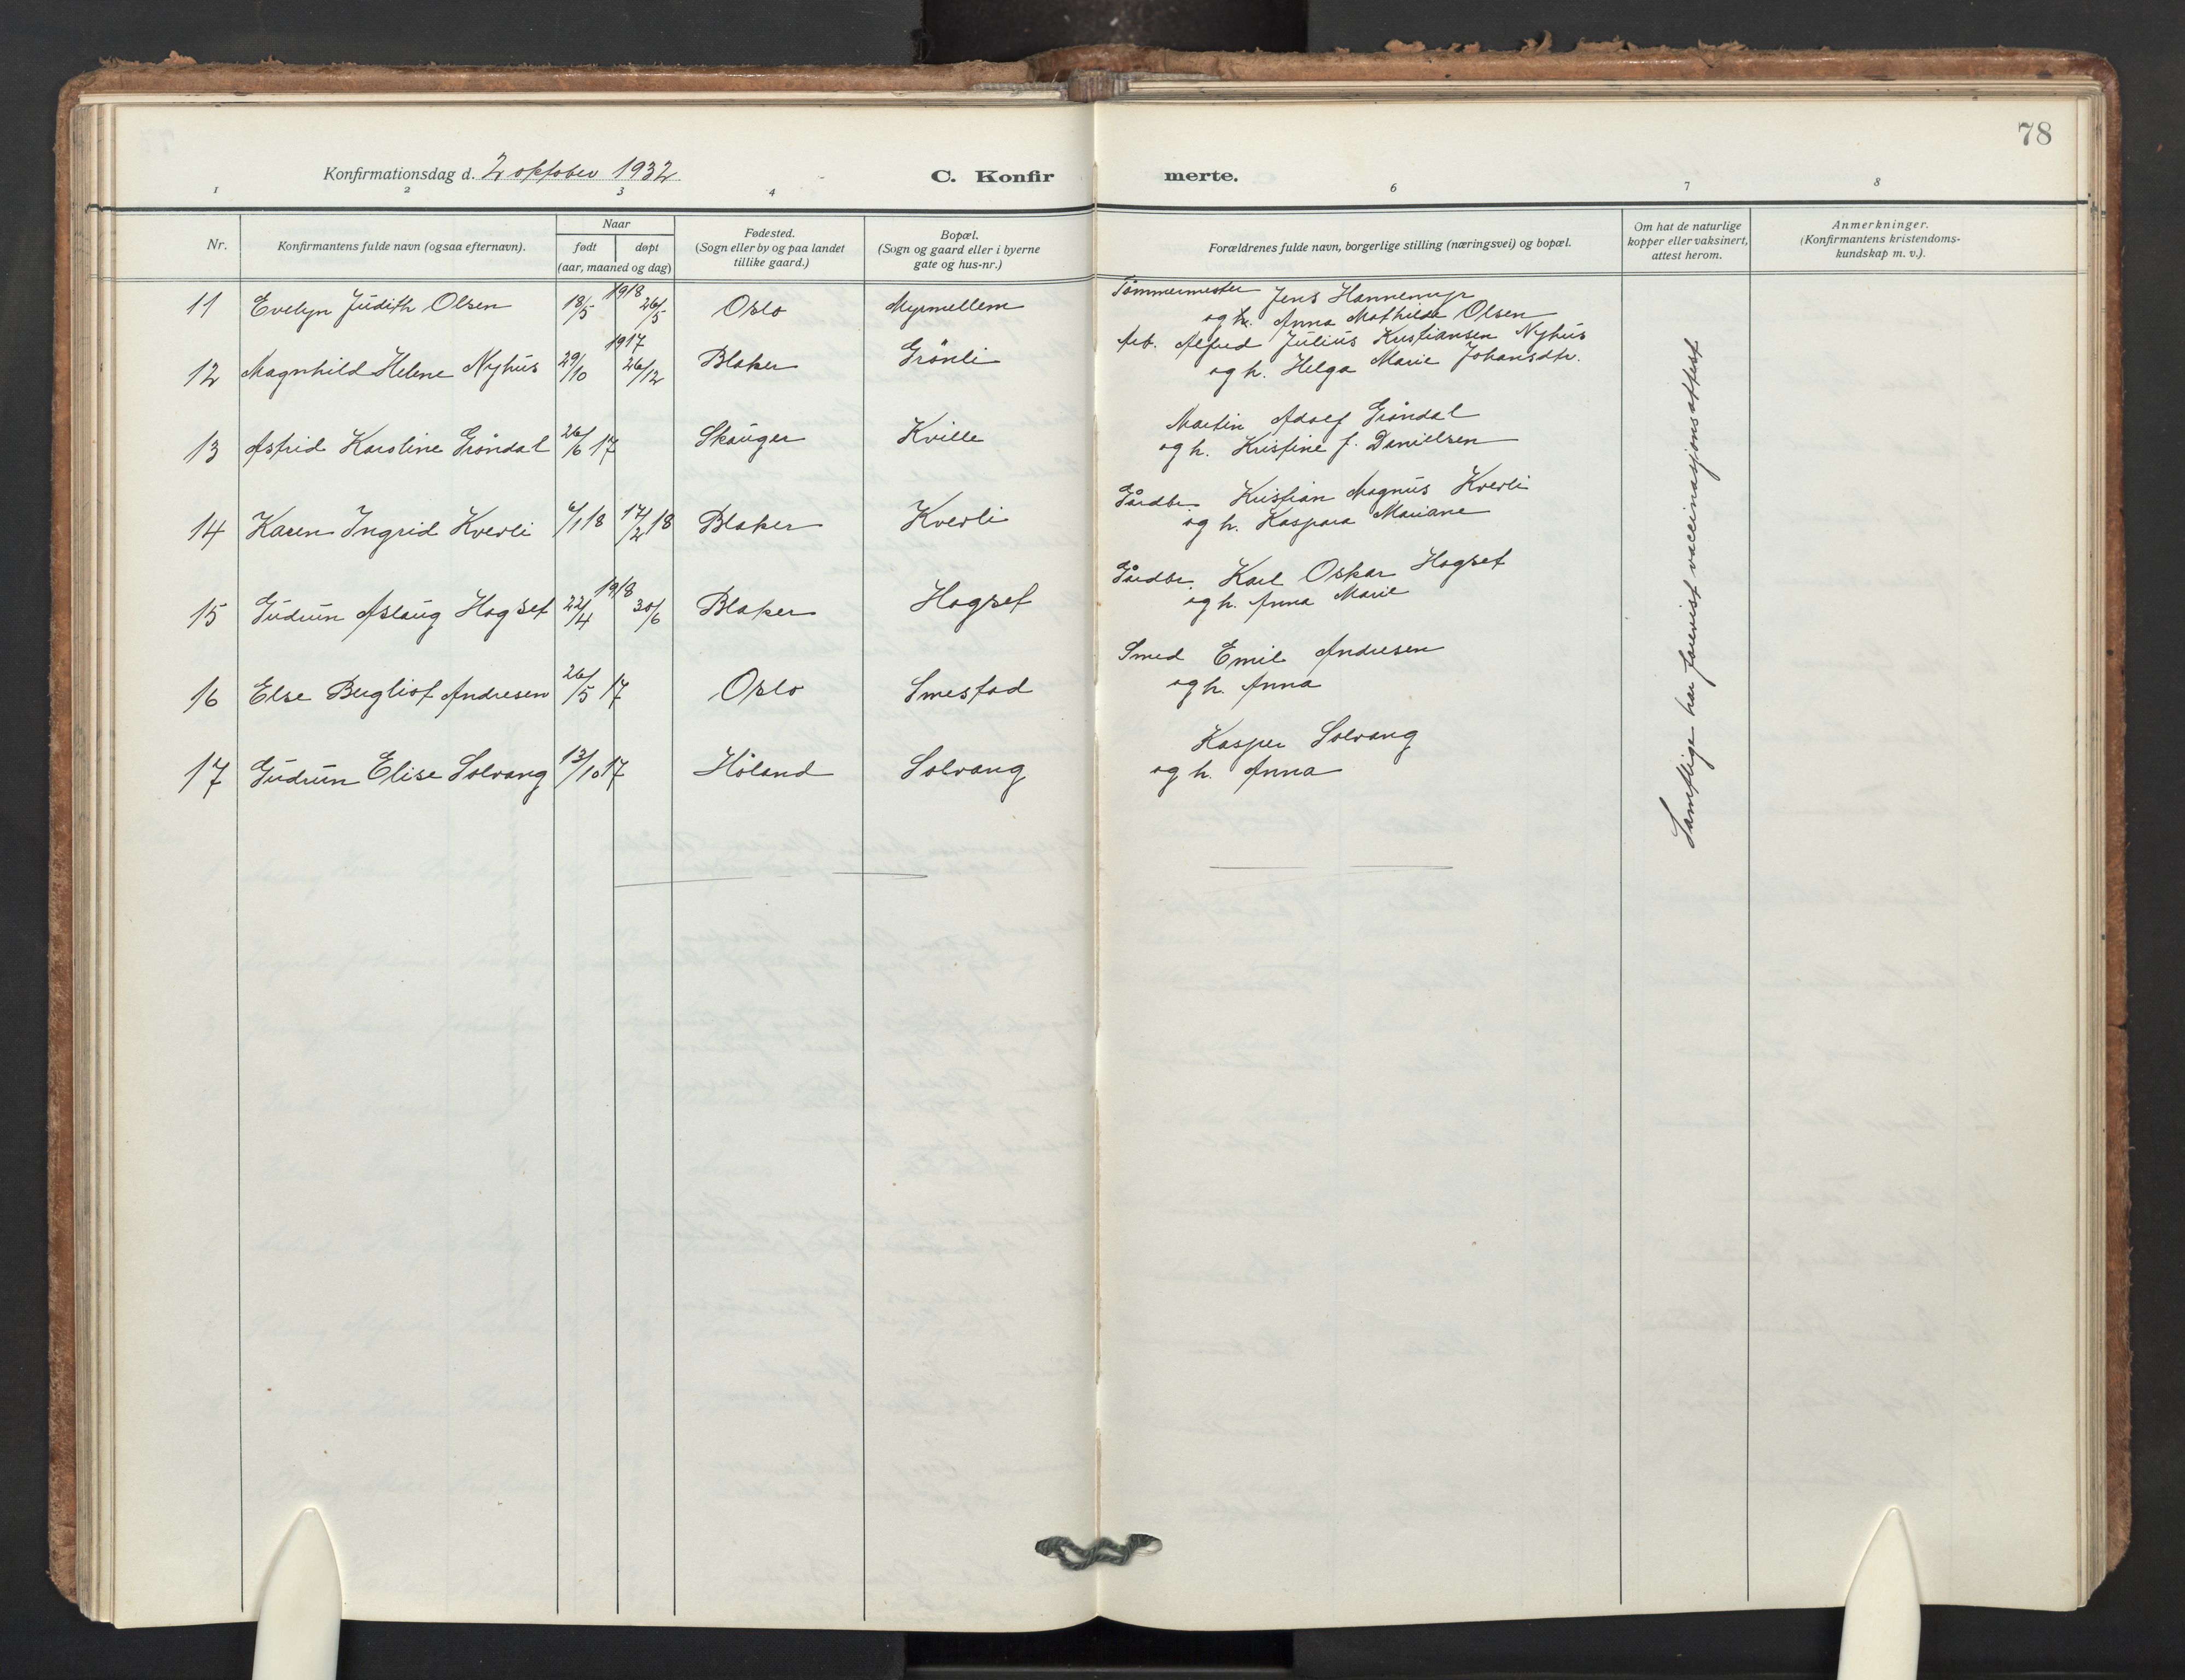 78
Konfirmationsdag d. 2 oktober 1932
C. Konfirmerte.
1 2 3 4 6 7 8
Nr.
Konfirmantens fulde navn (ogsaa efternavn).
Naar
født
døpt
(aar, maaned og dag)
Fødested.
(Sogn eller by og paa landet
tillike gaard.)
Bopæl.
(Sogn og gaard eller i byerne
gate og hus-nr.)
Forældrenes fulde navn, borgerlige stilling (næringsvei) og bopæl.
Om hat de naturlige
kopper eller vaksinert,
attest herom.
Anmerkninger.
(Konfirmantens kristendoms-
kundskap m. v.).
11 Evelyn Judith Olsen 18/5 1918 26/5 Oslo Myrmellem Tømmermester Jens Hannemyr
og h. Anna Mathilde Olsen
12 Magnhild Helene Nyhus 29/10 1917 26/12 Blaker Grönli Arb. Alfred Julius Kristiansen Nyhus
og h. Helga Marie Johansdtr.
13 Astrid Karoline Gröndal 26/6 17 Skauger Kville Martin Adolf Gröndal
og h. Kristine f. Danielsen
14 Karen Ingrid Kverli 6/1 18 17/2 18 Blaker Kverli Gårdbr. Kristian Magnus Kverli
og h. Kaspara Mariane
15 Gudrun Aslaug Hogset 22/4 1918 30/6 Blaker Hogset Gårdbr. Karl Oskar Hogset
og h. Anna Marie
16 Else Bergliot Andresen 26/5 17 Oslo Smestad Smed Emil Andresen
og h. Anna
17 Gudrun Elise Solvang 13/10 17 Höland Solvang Kasper Solvang
og h. Anna
Samtlige har forevist vaccinasjonsattest